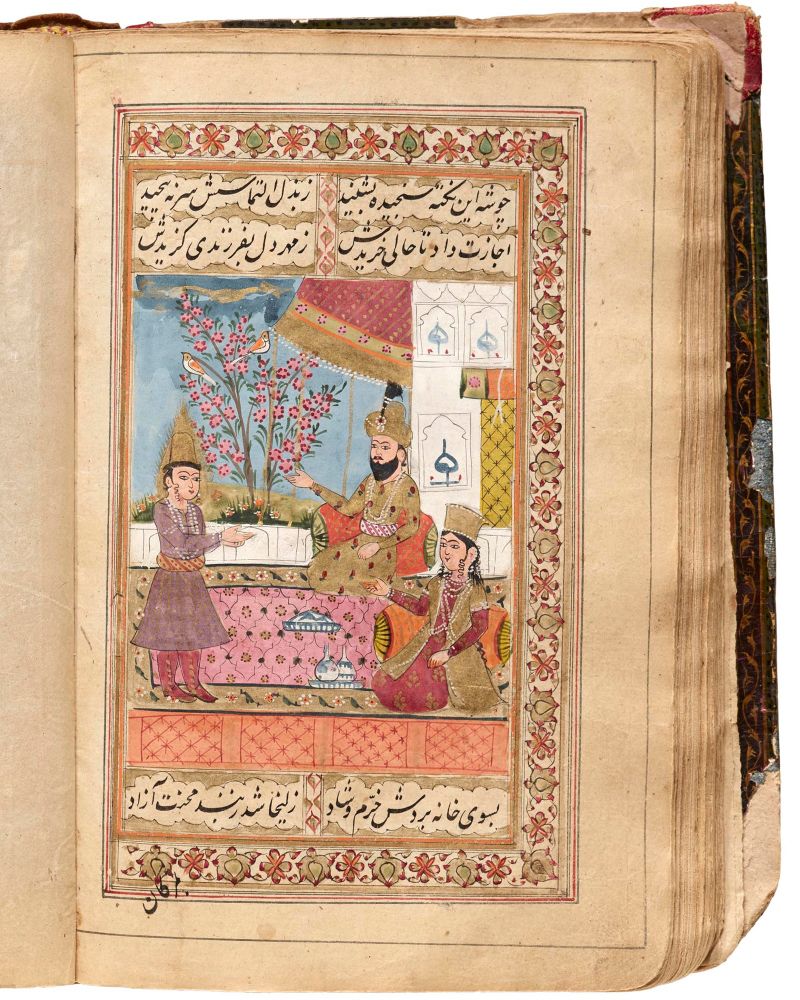 چو شه این نکته سنجیده بشنید ز بذل التماسش سر نه پیچید
اجازت داد تا حالی خریدش ز مهر دل بفرزندی کزیدش
بسوی خانه بردش خرم و شاد زلیخا شد ز بند محنت آزاد
بمژکان